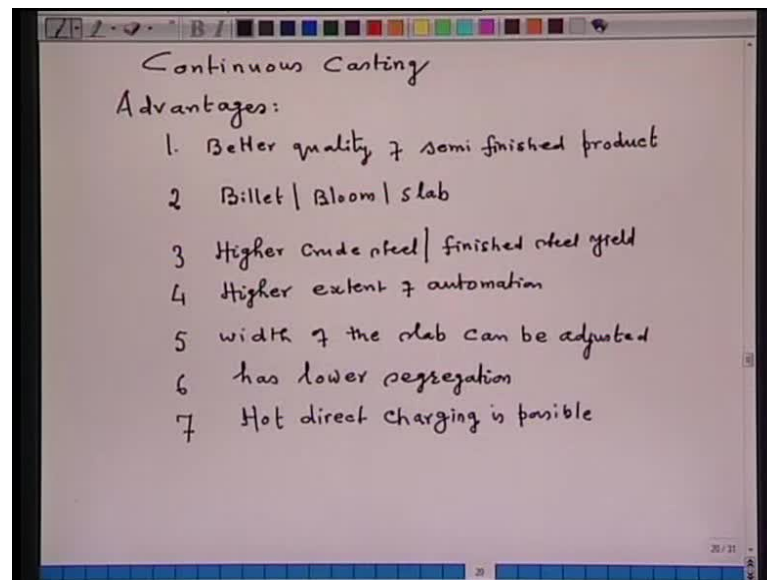 Continuous Casting
Advantages:
1. Better quality of semi finished product
2 Billet | Bloom | slab
3 Higher crude steel | finished steel yield
4 Higher extent of automation
5 width of the slab can be adjusted
6 has lower segregation
7 Hot direct charging is possible
20/31
20